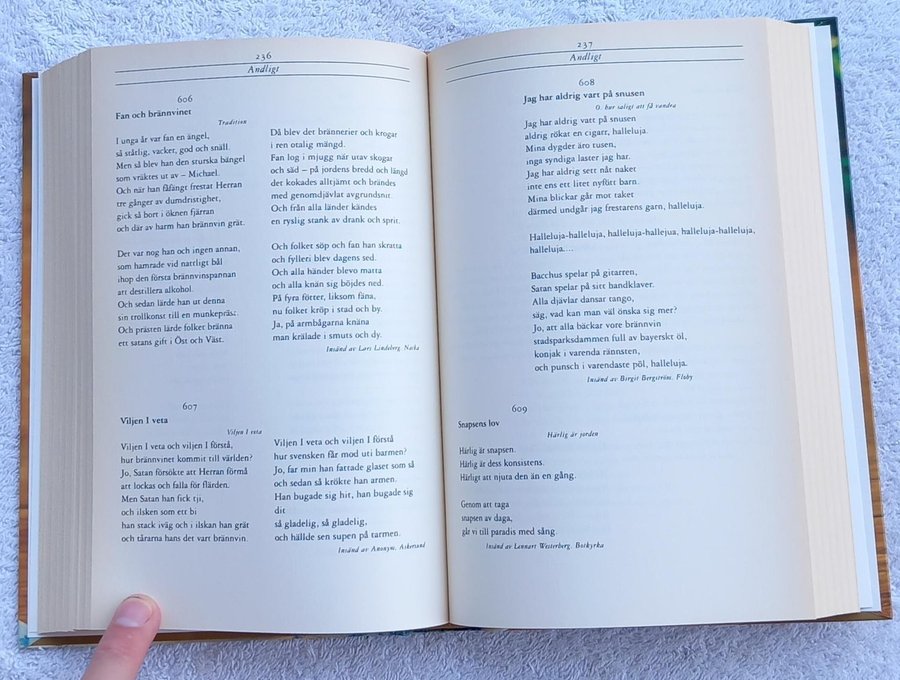 236
Andligt
606
Fan och brännvinet
Tradition
I unga år var fan en ängel,
så ståtlig, vacker, god och snäll.
Men så blev han den sturska bängel
som vräktes ut av – Michael.
Och när han fåfängt frestat Herran
tre gånger av dumdristighet,
gick så bort i öknen fjärran
och där av harm han brännvin grät.
Det var nog han och ingen annan,
som hamrade vid nattligt bål
ihop den första brännvinspannan
att destillera alkohol.
Och sedan lärde han ut denna
sin trollkonst till en munkepräst.
Och prästen lärde folket bränna
ett satans gift i Öst och Väst.
Då blev det brännerier och krogar
i ren otalig mängd.
Fan log i mjugg när utav skogar
och säd – på jordens bredd och längd
det kokades alltjämt och brändes
med genomdjävlat avgrundsnit.
Och från alla länder kändes
en ryslig stank av drank och sprit.
Och folket söp och fan han skratta
och fylleri blev dagens sed.
Och alla händer blevo matta
och alla knän sig böjdes ned.
På fyra fötter, liksom fäna,
nu folket kröp i stad och by.
Ja, på armbågarna knäna
man krälade i smuts och dy.
Insänd av Lars Lindeberg, Nacka
607
Viljen I veta
Viljen I veta
Viljen I veta och viljen I förstå,
hur brännvinet kommit till världen?
Jo, Satan försökte att Herran förmå
att lockas och falla för flärden.
Men Satan han fick tji,
och ilsken som ett bi
han stack iväg och i ilskan han grät
och tårarna hans det vart brännvin.
Viljen I veta och viljen I förstå
hur svensken får mod uti barmen?
Jo, far min han fattade glaset som så
och sedan så krökte han armen.
Han bugade sig hit, han bugade sig
dit
så gladelig, så gladelig,
och hällde sen supen på tarmen.
Insänd av Anonym, Askersund
237
Andligt
608
Jag har aldrig vart på snusen
O, hur saligt att få vandra
Jag har aldrig vart på snusen
aldrig rökat en cigarr, halleluja.
Mina dygder äro tusen,
inga syndiga laster jag har.
Jag har aldrig sett nåt naket
inte ens ett litet nyfött barn.
Mina blickar går mot taket
därmed undgår jag frestarens garn, halleluja.
Halleluja-halleluja, halleluja-hallejua, halleluja-halleluja,
halleluja....
Bacchus spelar på gitarren,
Satan spelar på sitt handklaver.
Alla djävlar dansar tango,
säg, vad kan man väl önska sig mer?
Jo, att alla bäckar vore brännvin
stadsparksdammen full av bayerskt öl,
konjak i varenda rännsten,
och punsch i varendaste pöl, halleluja.
Insänd av Birgit Bergström, Floby
609
Snapsens lov
Härlig är jorden
Härlig är snapsen.
Härlig är dess konsistens.
Härligt att njuta den än en gång.
Genom att taga
snapsen av daga,
går vi till paradis med sång.
Insänd av Lennart Westerberg, Botkyrka